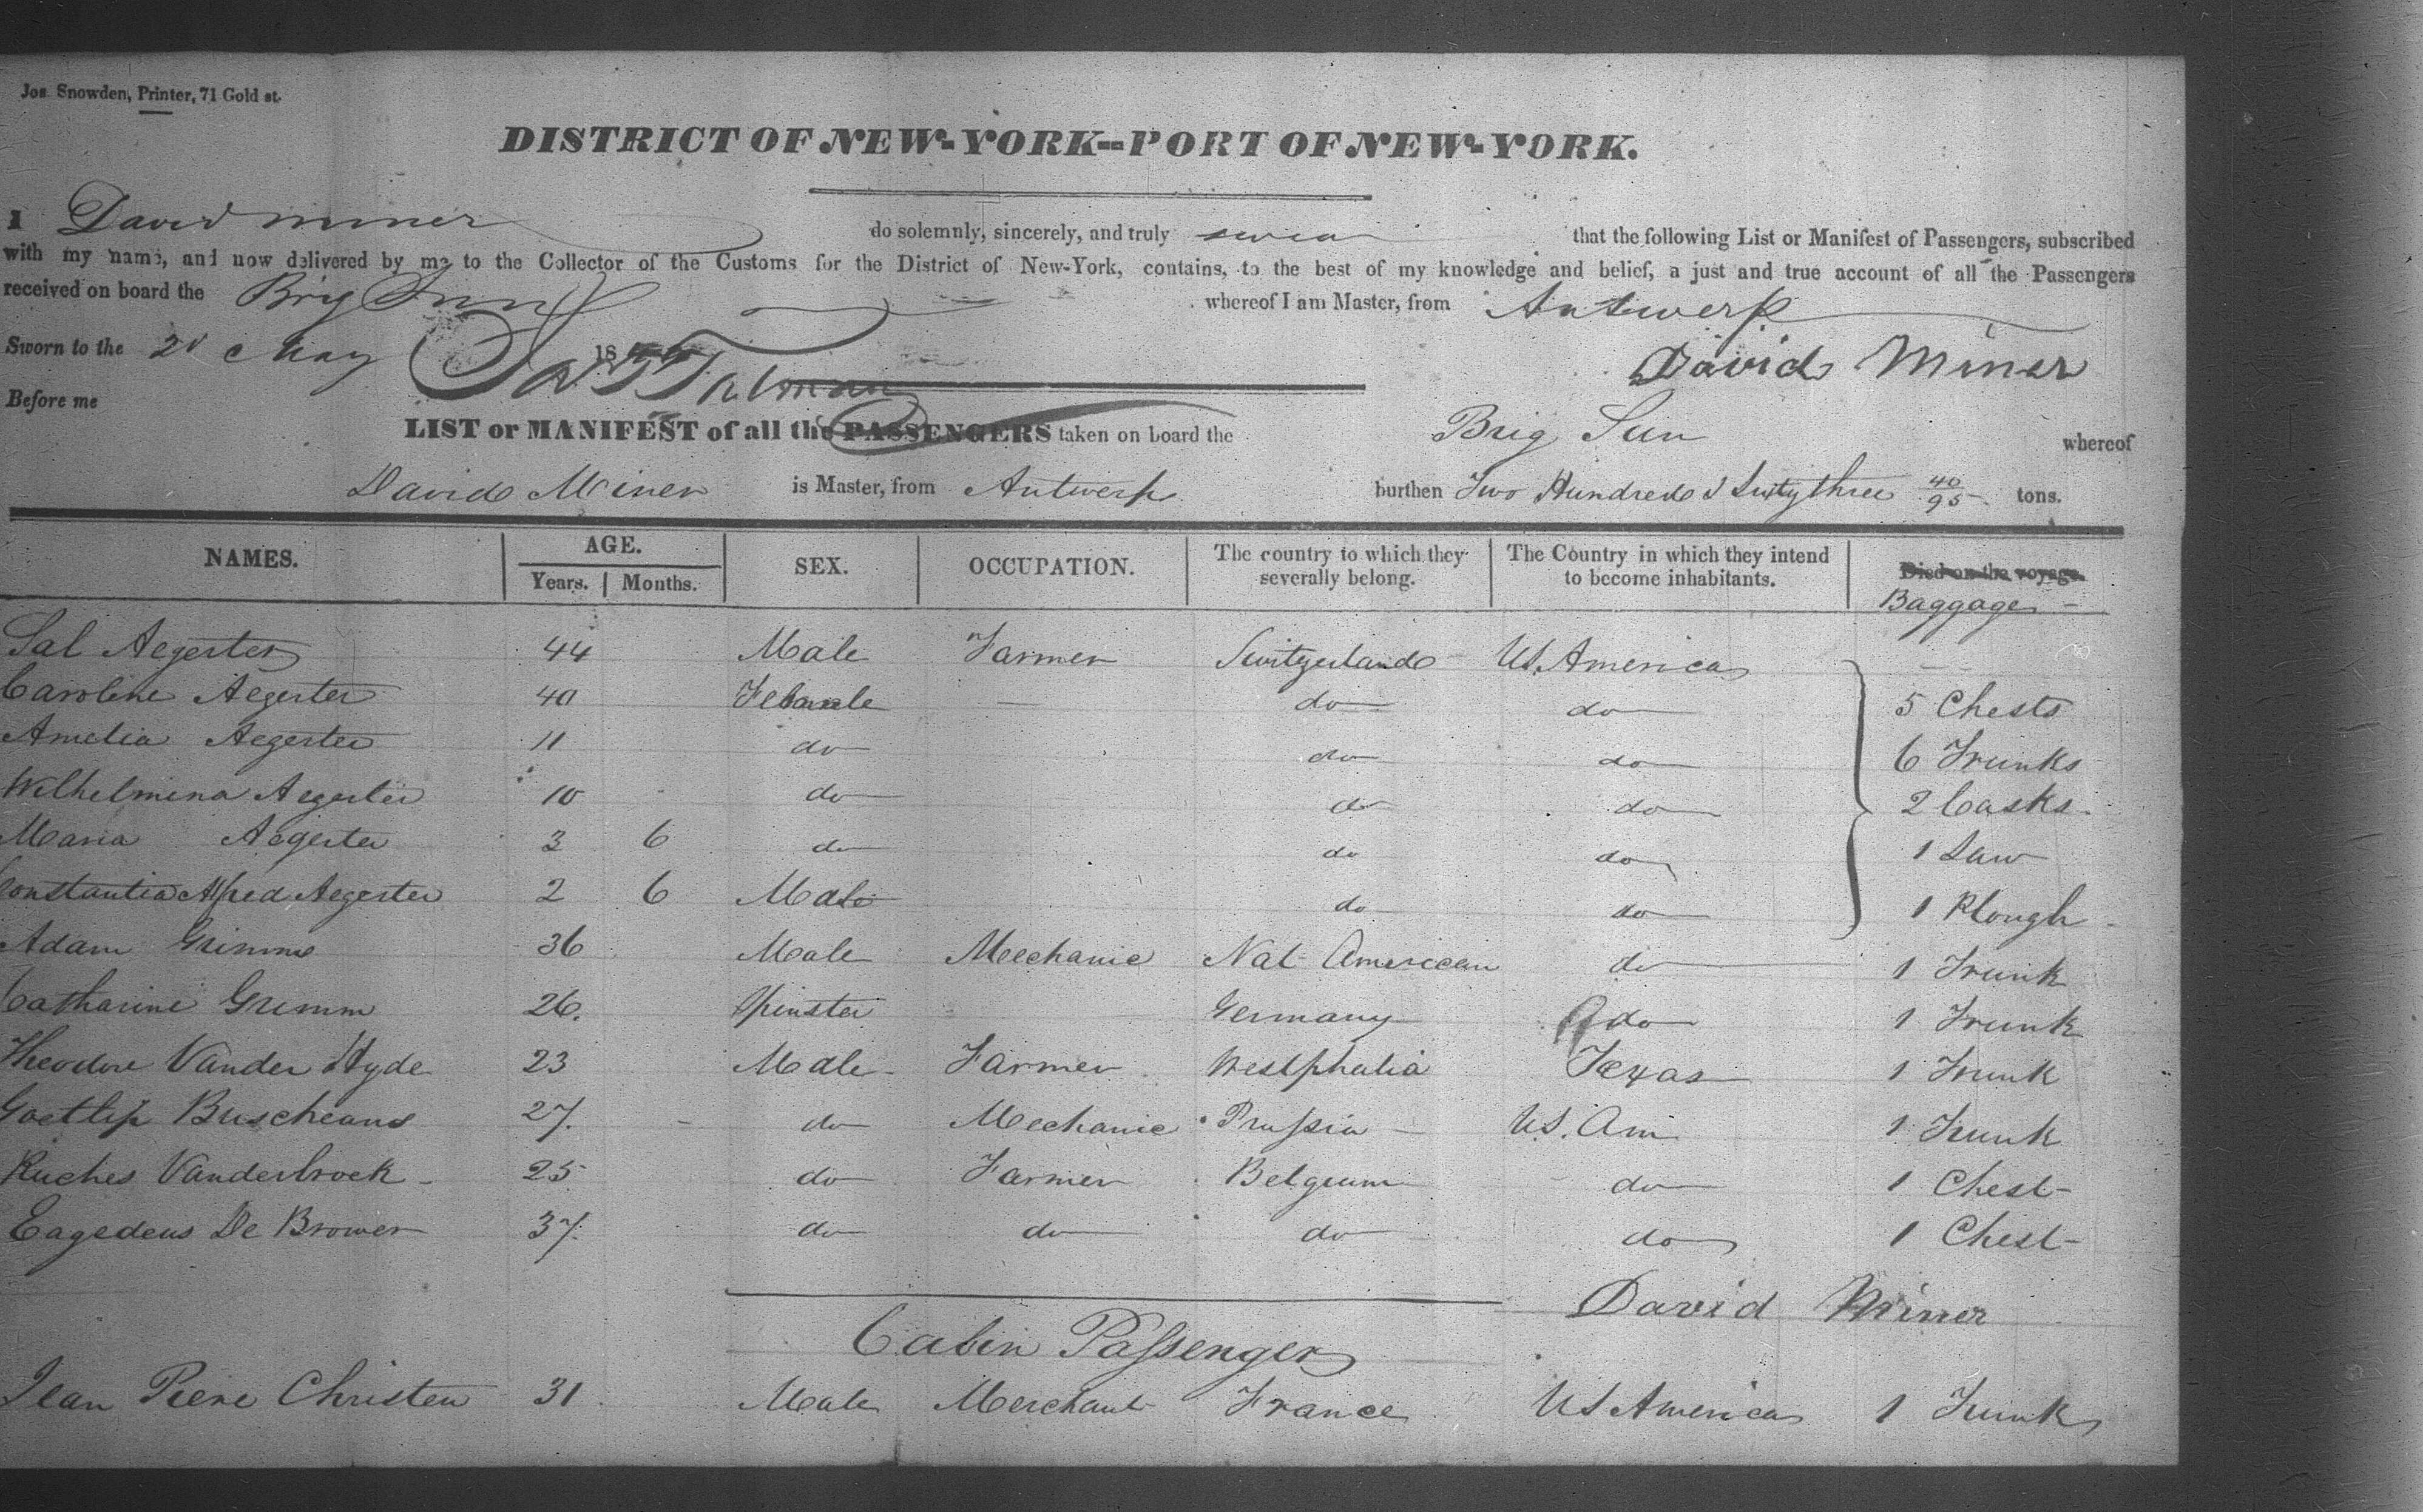 Jos. Snowden, Printer, 71 Gold st.
DISTRICT OF NEW-YORK--PORT OF NEW-YORK.
I David Miner do solemnly, sincerely, and truly swear that the following List or Manifest of Passengers, subscribed
with my name, and now delivered by me to the Collector of the Customs for the District of New-York, contains, to the best of my knowledge and belief, a just and true account of all the Passengers
received on board the Brig Sun whereof I am Master, from Antwerp
Sworn to the 21 May 18
David Miner
Before me
LIST or MANIFEST of all the PASSENGERS taken on board the Brig Sun whereof
David Miner is Master, from Antwerp burthen Two Hundred & Sixty three 40/95 tons.
NAMES. AGE. Years. Months. SEX. OCCUPATION. The country to which they severally belong. The Country in which they intend to become inhabitants. Died on the voyage. Baggage
Sal Aegerter 44 Male Farmer Switzerland US. America
Caroline Aegerter 40 Female — do do 5 Chests
Amelia Aegerter 11 do do do 6 Trunks
Wilhelmina Aegerter 10 do do do 2 Casks
Maria Aegerter 3 6 do do do 1 Saw
Constantia Alfred Aegerter 2 6 Male do do 1 Plough
Adam Grimm 36 Male Mechanic Nat American do 1 Trunk
Catharine Grimm 26. Spinster Germany do 1 Trunk
Theodore Vander Hyde 23 Male Farmer Westphalia Texas 1 Trunk
Goetlip Buscheans 27. do Mechanic Prussia US. Am 1 Trunk
Ruches Vanderbrock 25 do Farmer Belgium do 1 Chest
Eagedeus De Brower 37. do do do do 1 Chest
David Miner
Cabin Passenger
Jean Piere Christen 31 Male Merchant France US America 1 Trunk